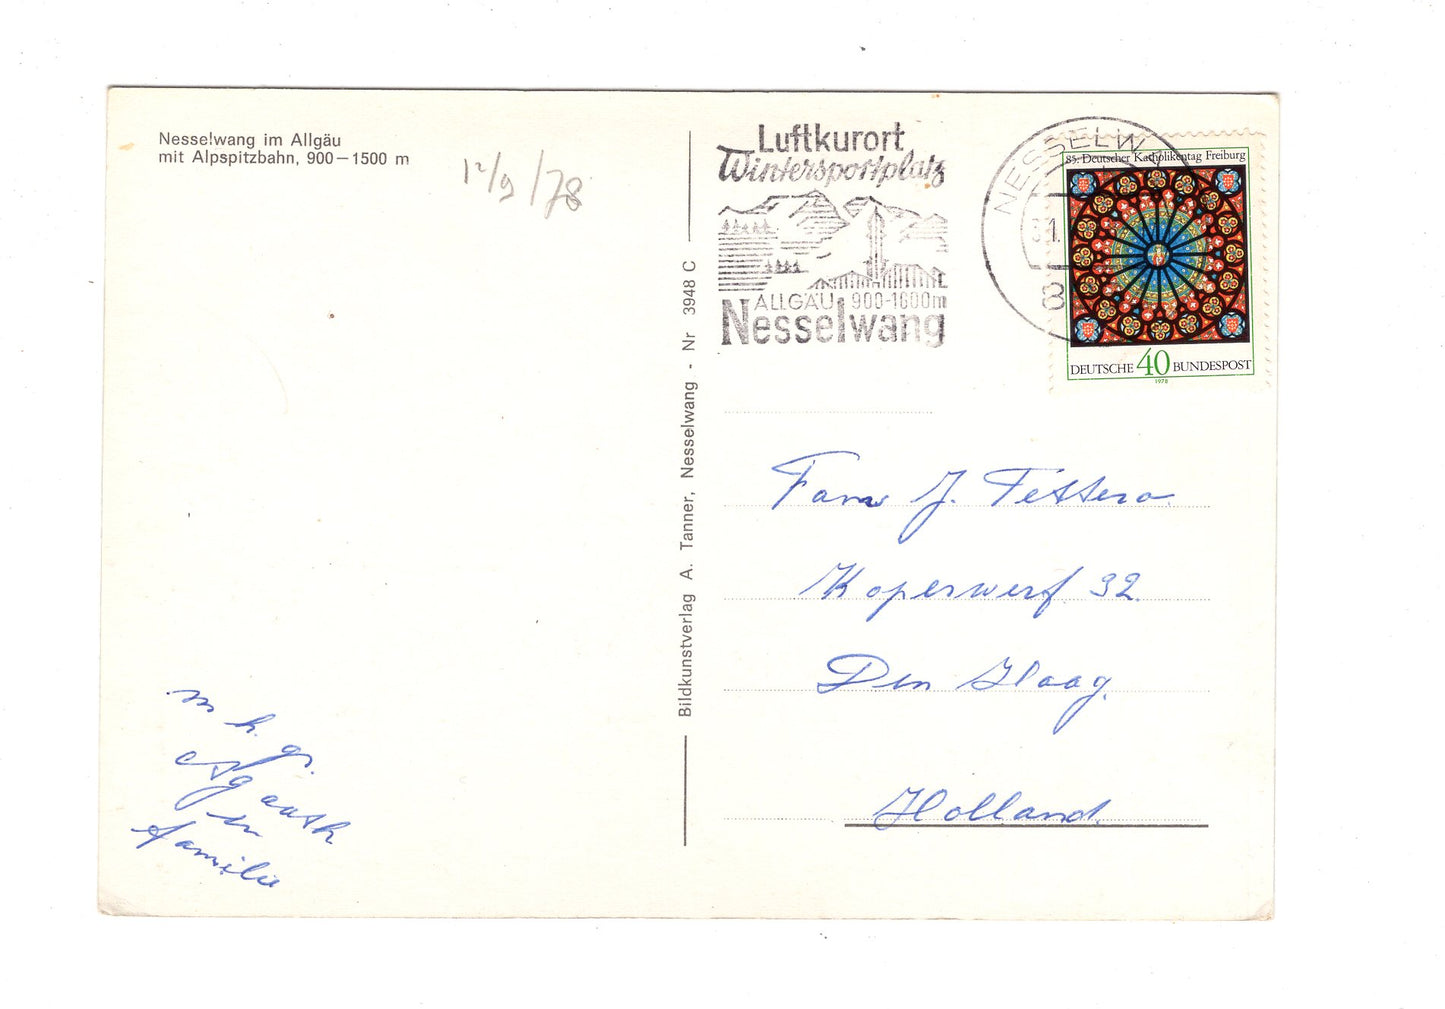 Nesselwang im Allgäu
mit Alpspitzbahn, 900—1500 m
12/9/78
m h. gr.
en
familie
Bildkunstverlag A. Tanner, Nesselwang - Nr 3948 C
Luftkurort
Wintersportplatz
ALLGÄU 900-1600m
Nesselwang
NESSELW
1.
8
85. Deutscher Katholikentag Freiburg
DEUTSCHE 40 BUNDESPOST
1978
Fam J. Tettero
Koperwerf 32
Den Haag.
Holland.